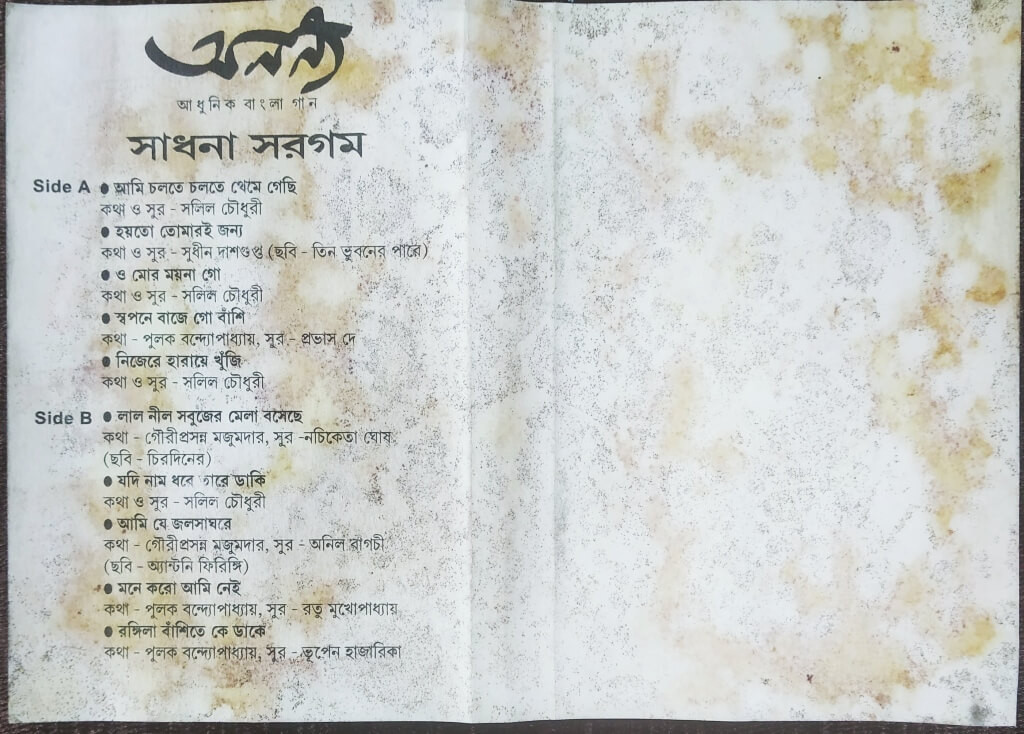 অনন্য
আধুনিক বাংলা গান
সাধনা সরগম
Side A ● আমি চলতে চলতে থেমে গেছি
কথা ও সুর - সলিল চৌধুরী
● হয়তো তোমারই জন্য
কথা ও সুর - সুধীন দাশগুপ্ত (ছবি - তিন ভুবনের পারে)
● ও মোর ময়না গো
কথা ও সুর - সলিল চৌধুরী
● স্বপনে বাজে গো বাঁশি
কথা - পুলক বন্দ্যোপাধ্যায়, সুর - প্রভাস দে
● নিজেরে হারায়ে খুঁজি
কথা ও সুর - সলিল চৌধুরী
Side B ● লাল নীল সবুজের মেলা বসেছে
কথা - গৌরীপ্রসন্ন মজুমদার, সুর -নচিকেতা ঘোষ
(ছবি - চিরদিনের)
● যদি নাম ধরে ডাকি
কথা ও সুর - সলিল চৌধুরী
● আমি যে জলসাঘরে
কথা - গৌরীপ্রসন্ন মজুমদার, সুর - অনিল বাগচী
(ছবি - অ্যান্টনি ফিরিঙ্গি)
● মনে করো আমি নেই
কথা - পুলক বন্দ্যোপাধ্যায়, সুর - রতু মুখোপাধ্যায়
● রঙ্গিলা বাঁশিতে কে ডাকে
কথা - পুলক বন্দ্যোপাধ্যায়, সুর - ভূপেন হাজারিকা